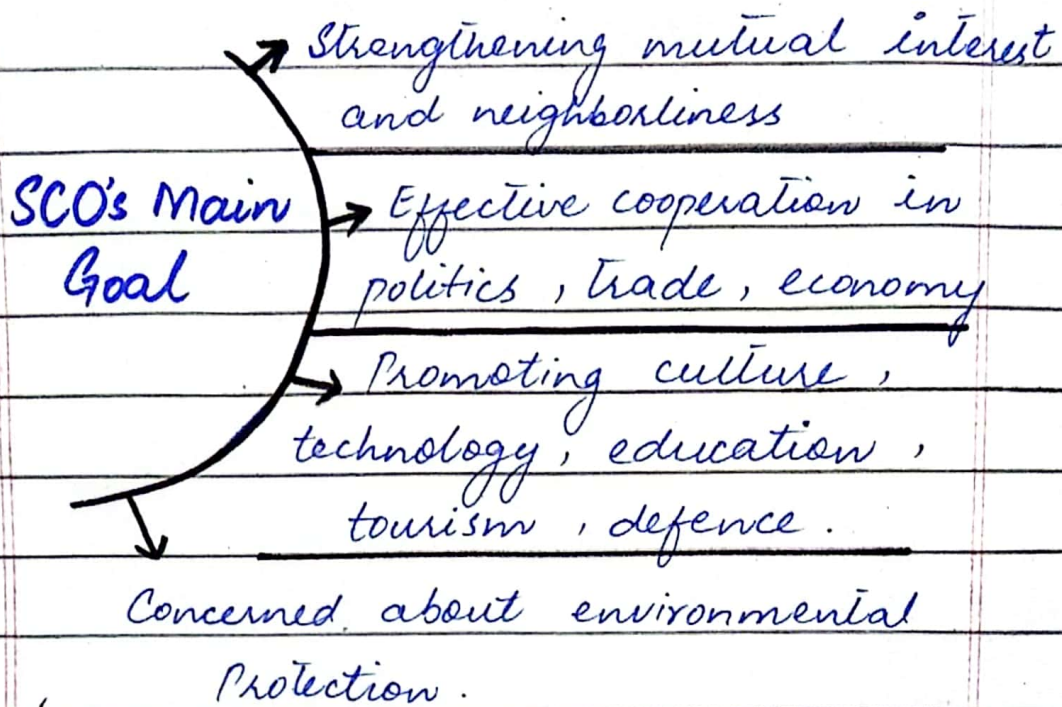 SCO's Main
Goal
Strengthening mutual interest
and neighborliness
Effective cooperation in
politics, trade, economy
Promoting culture,
technology, education,
tourism, defence.
Concerned about environmental
Protection.